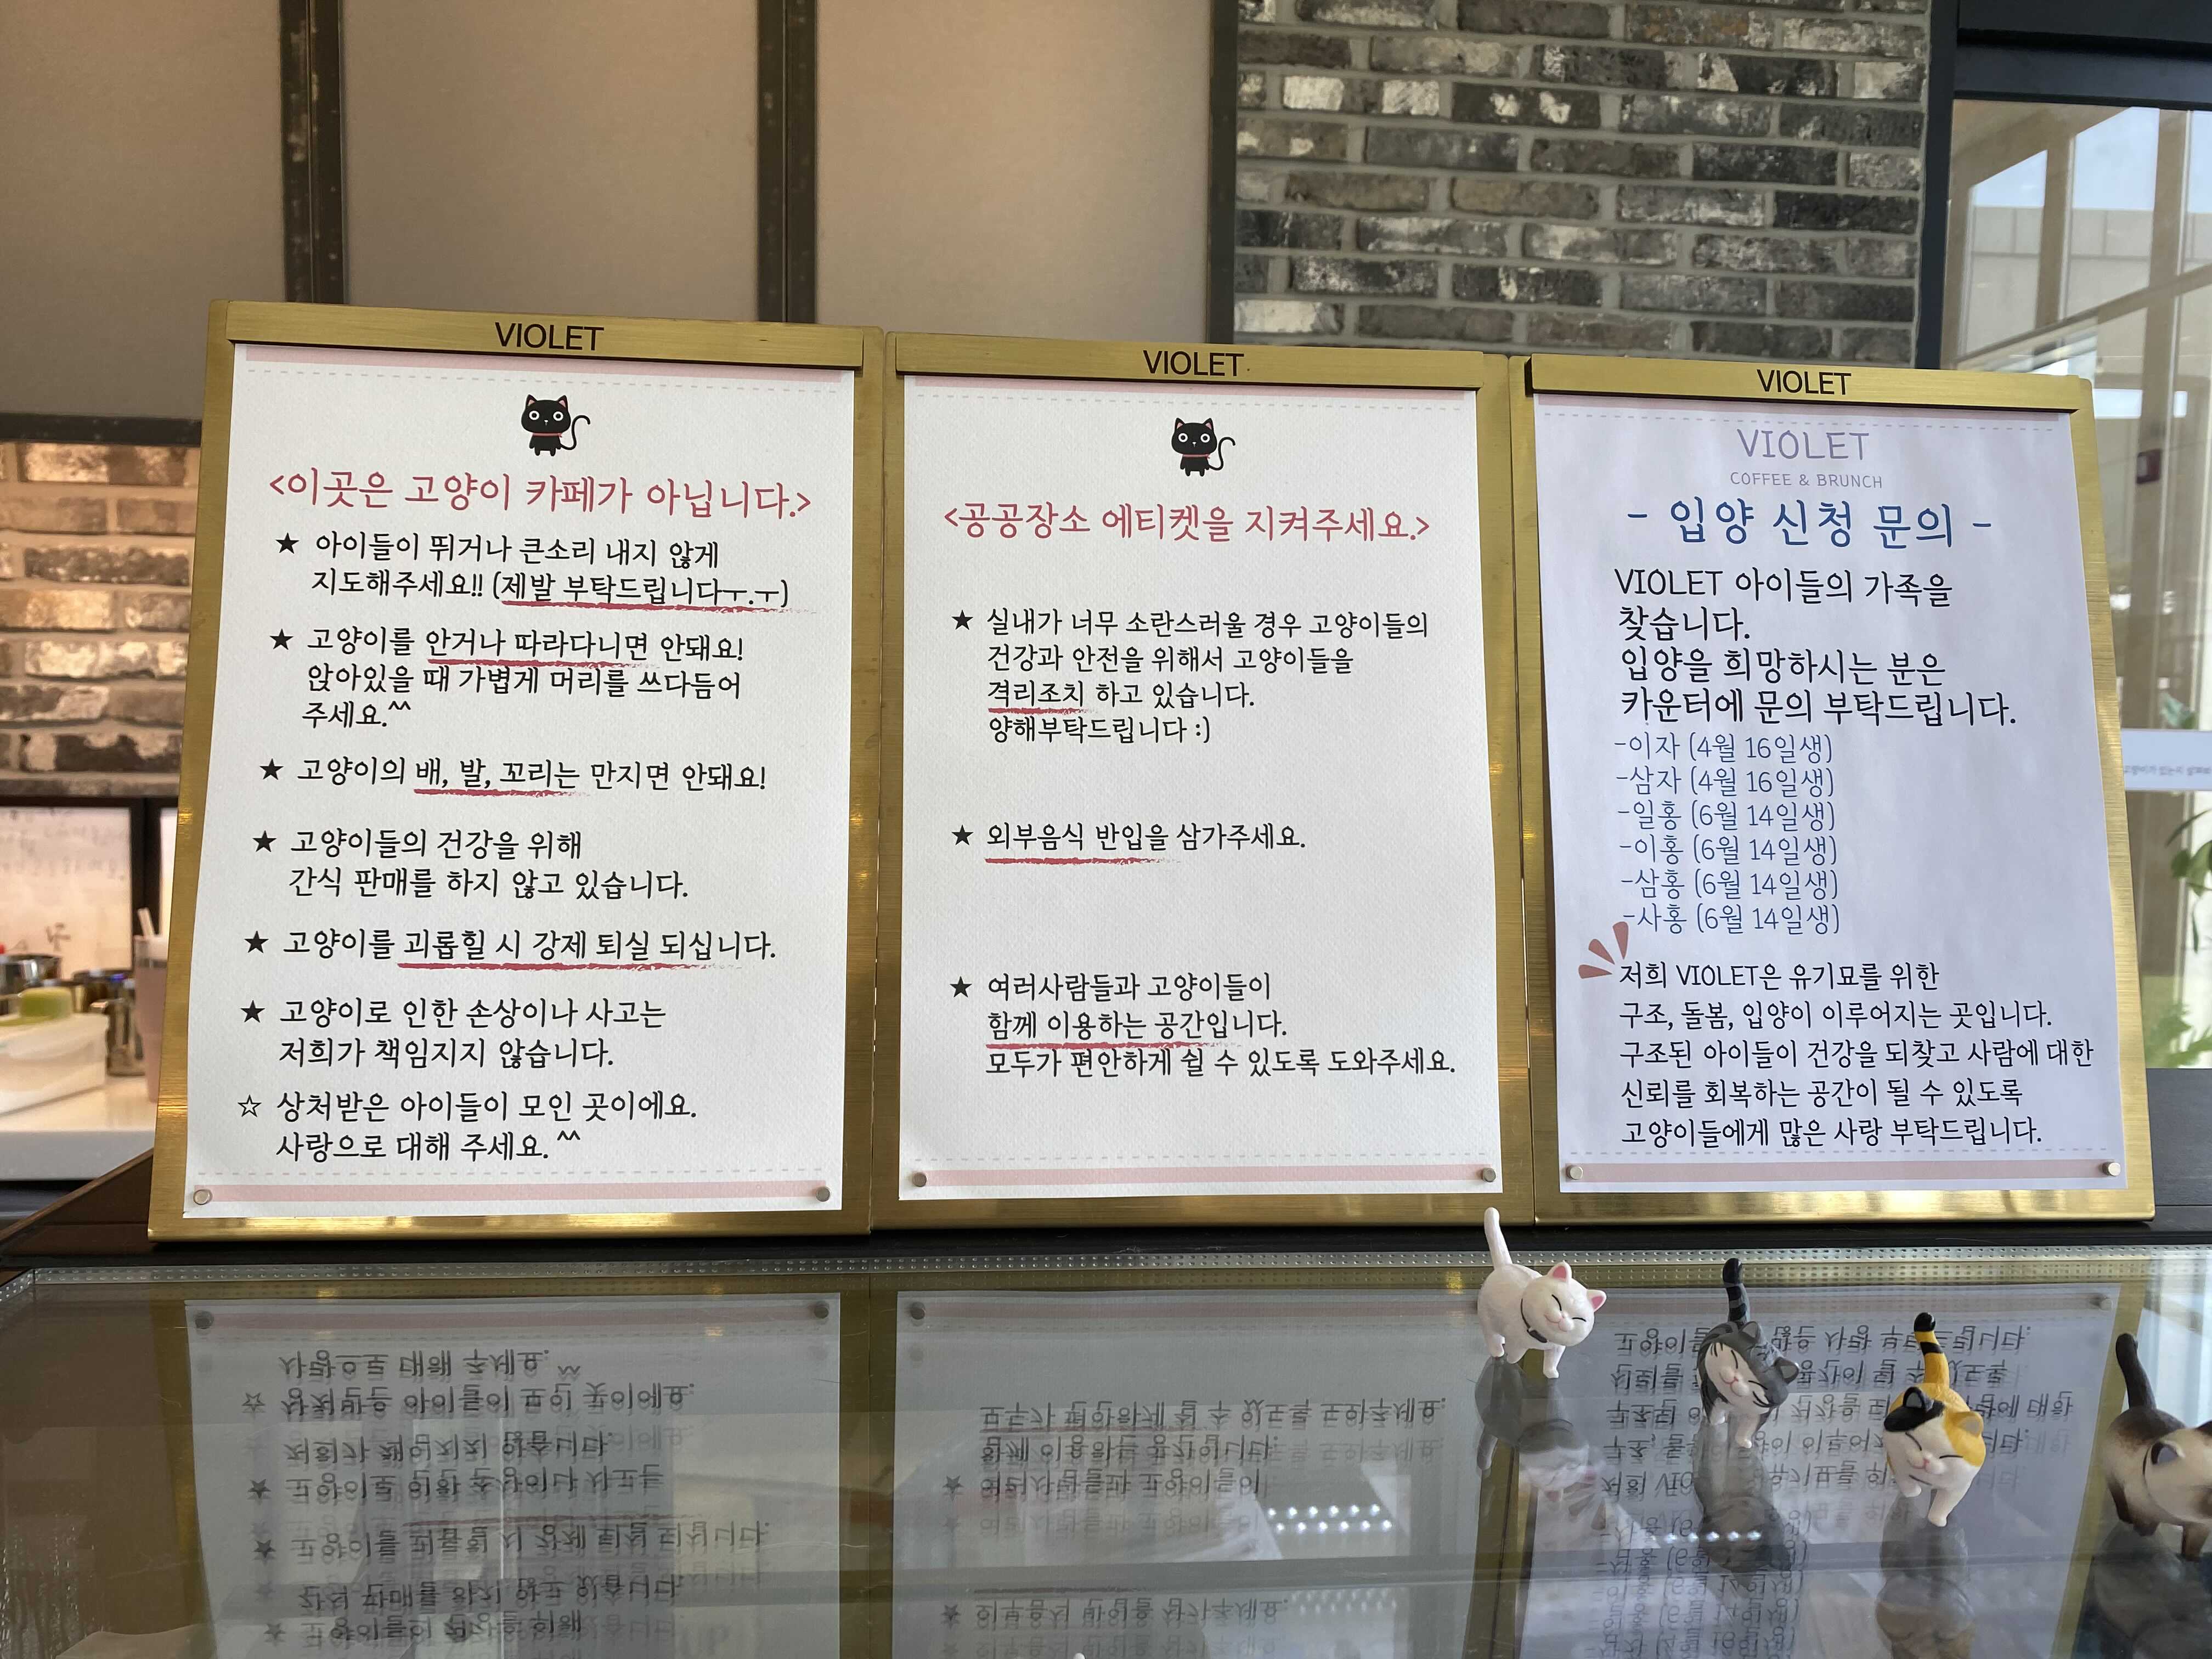 VIOLET
<이곳은 고양이 카페가 아닙니다.>
★ 아이들이 뛰거나 큰소리 내지 않게
지도해주세요!! (제발 부탁드립니다ㅜ.ㅜ)
★ 고양이를 안거나 따라다니면 안돼요!
앉아있을 때 가볍게 머리를 쓰다듬어
주세요.^^
★ 고양이의 배, 발, 꼬리는 만지면 안돼요!
★ 고양이들의 건강을 위해
간식 판매를 하지 않고 있습니다.
★ 고양이를 괴롭힐 시 강제 퇴실 되십니다.
★ 고양이로 인한 손상이나 사고는
저희가 책임지지 않습니다.
☆ 상처받은 아이들이 모인 곳이에요.
사랑으로 대해 주세요. ^^
VIOLET
<공공장소 에티켓을 지켜주세요.>
★ 실내가 너무 소란스러울 경우 고양이들의
건강과 안전을 위해서 고양이들을
격리조치 하고 있습니다.
양해부탁드립니다 :)
★ 외부음식 반입을 삼가주세요.
★ 여러사람들과 고양이들이
함께 이용하는 공간입니다.
모두가 편안하게 쉴 수 있도록 도와주세요.
VIOLET
VIOLET
COFFEE & BRUNCH
- 입양 신청 문의 -
VIOLET 아이들의 가족을
찾습니다.
입양을 희망하시는 분은
카운터에 문의 부탁드립니다.
-이자 (4월 16일생)
-삼자 (4월 16일생)
-일홍 (6월 14일생)
-이홍 (6월 14일생)
-삼홍 (6월 14일생)
-사홍 (6월 14일생)
저희 VIOLET은 유기묘를 위한
구조, 돌봄, 입양이 이루어지는 곳입니다.
구조된 아이들이 건강을 되찾고 사람에 대한
신뢰를 회복하는 공간이 될 수 있도록
고양이들에게 많은 사랑 부탁드립니다.